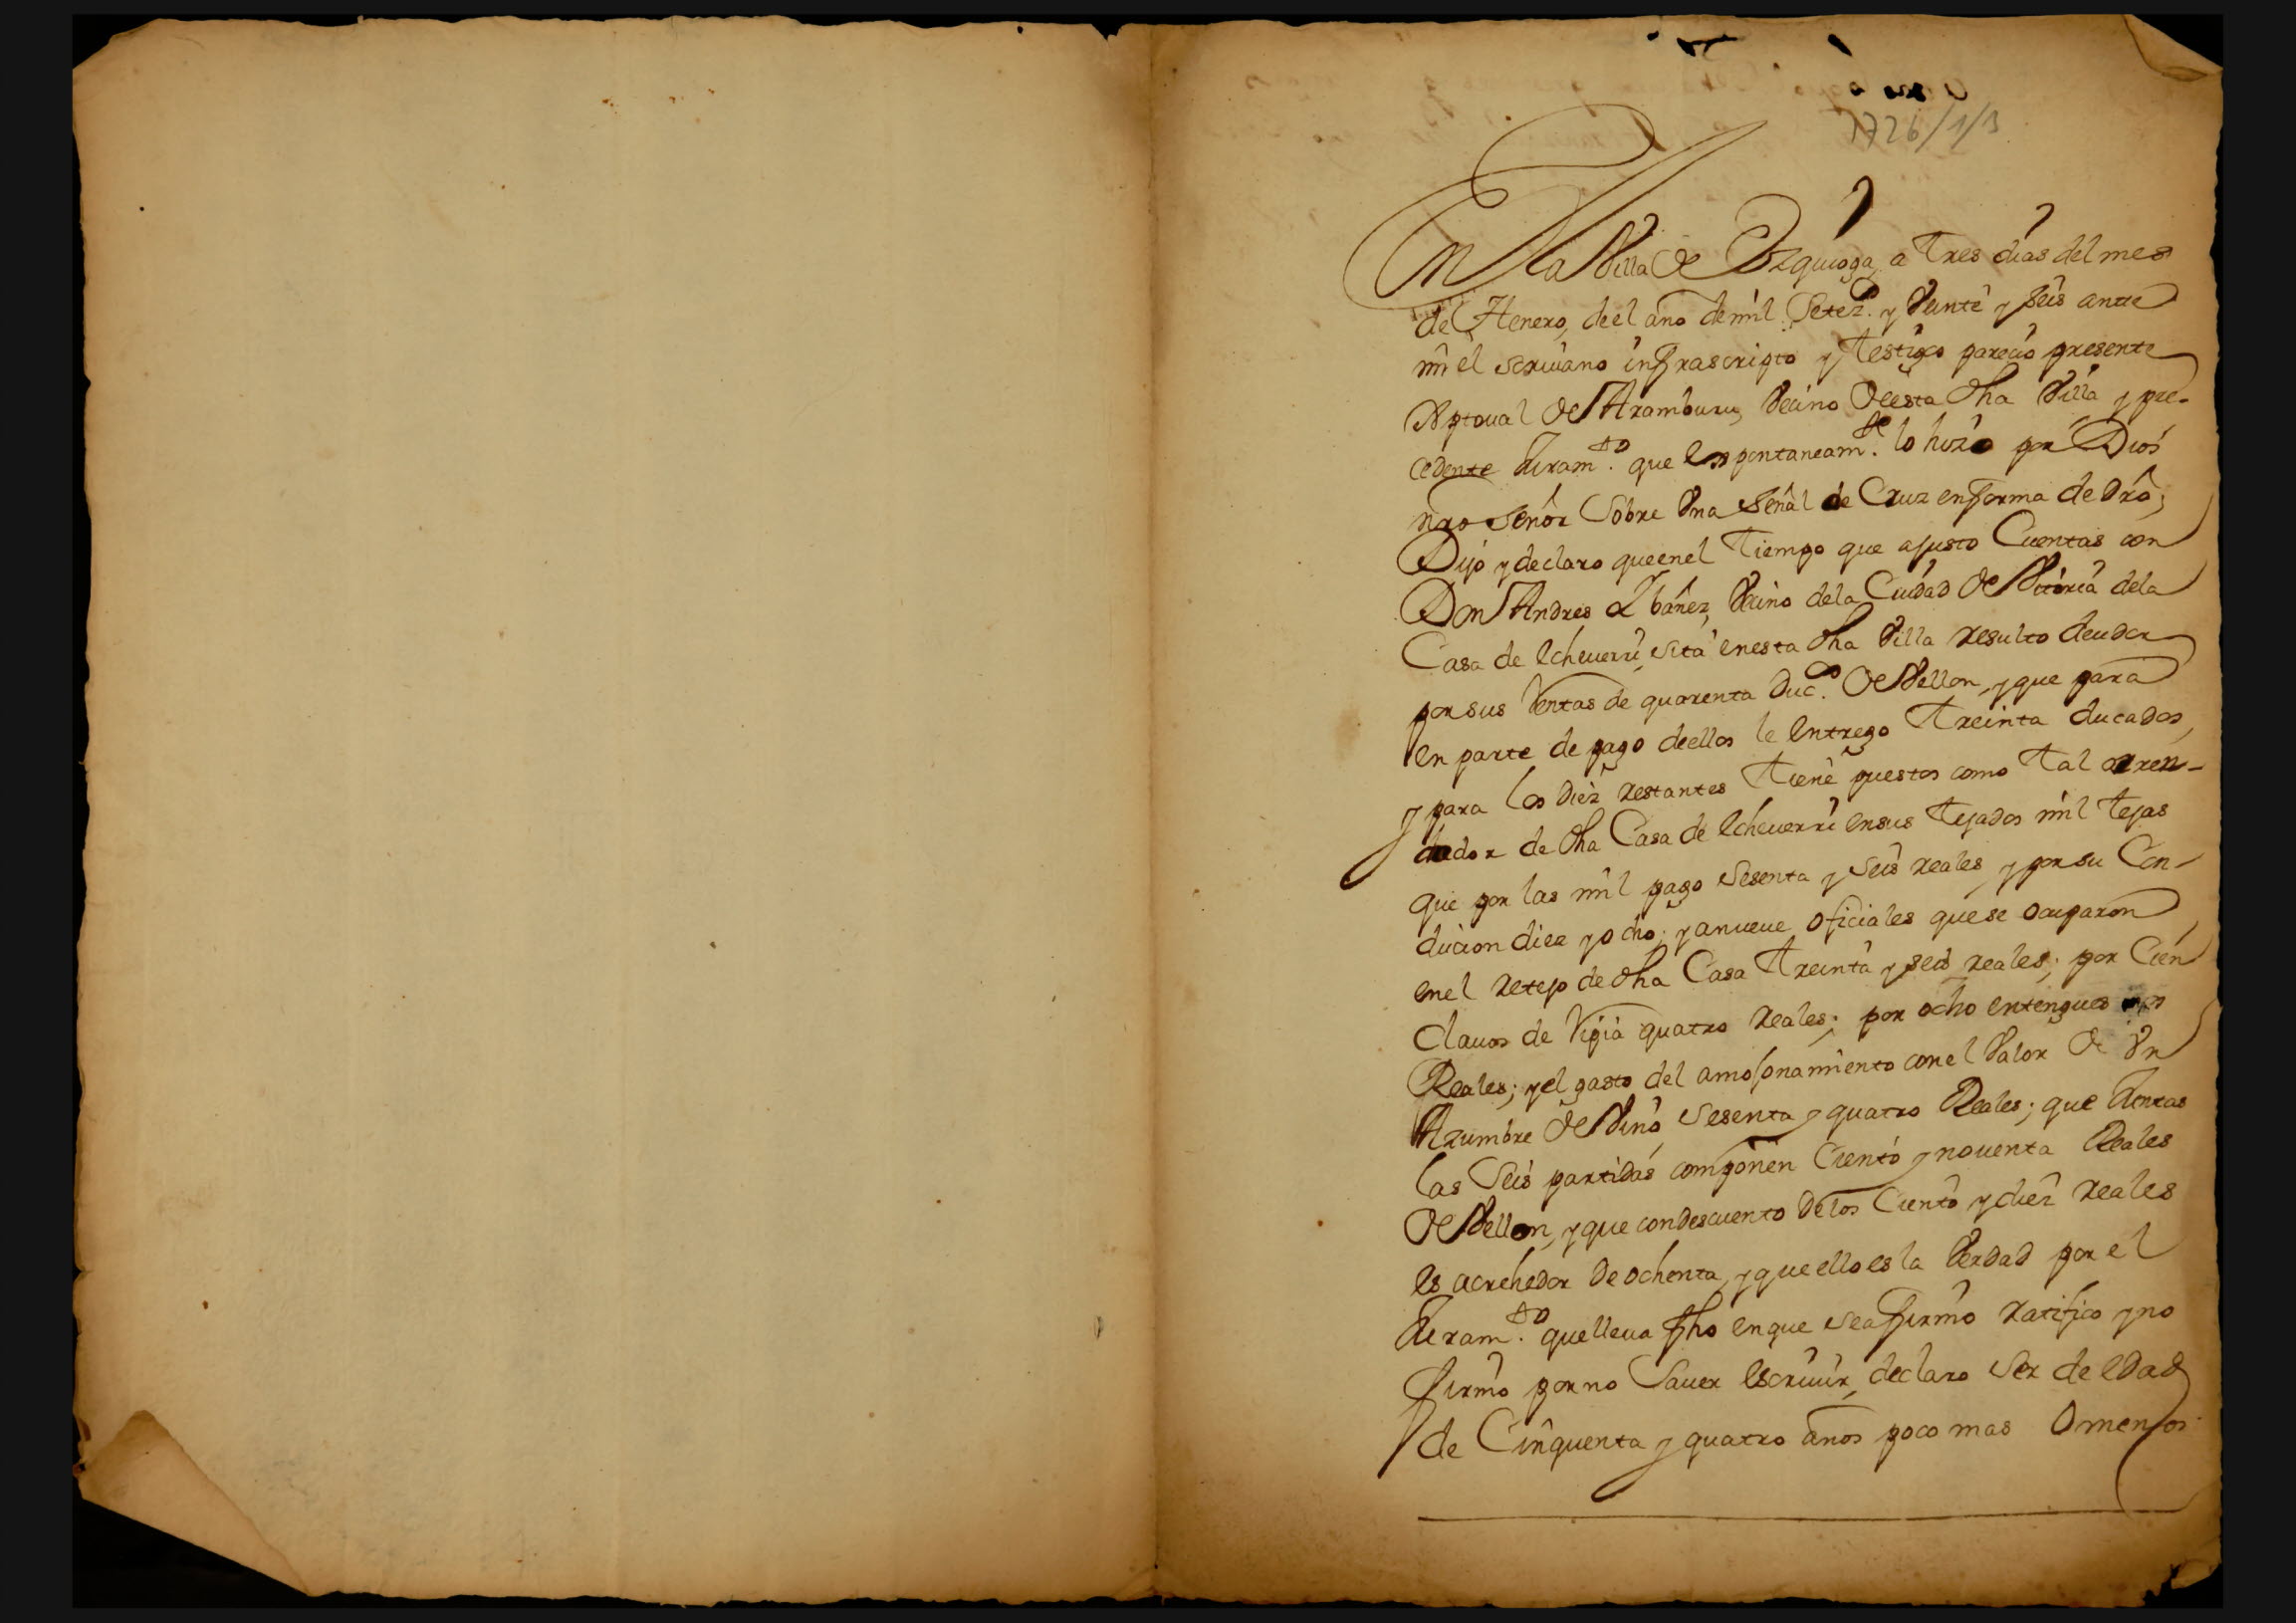 1726/1/3
En la Villa de Ezquioga, a tres dias del mes
de Henero, de el año de mil Setez.s y Veinte y seis ante
mi el scriuano infrascripto y testigo parecio presente
Xptoual de Aramburu, Vecino de esta dha Villa y pre-
cedente Juram.to que espontaneam.te lo hizo por Dios
nro señor sobre Una señal de Cruz en forma de dro,
Dijo y declaro que en el tiempo que ajusto Cuentas con
Don Andres Ybañez, Vecino de la Ciudad de Vitoria de la
Casa de Echeuerri, sita en esta dha Villa resulto deudor
por sus Rentas de quarenta Duc.s de Vellon, y que para
en parte de pago de ellos le entrego treinta ducados,
y para los diez restantes tiene puestos como tal arren-
dador de dha Casa de Echeuerri en sus tejados mil tejas
que por las mil pago sesenta y seis reales, y por su Con-
ducion diez y ocho; y a nueue oficiales que se ocuparon
en el retejo de dha Casa treinta y seis reales; por Cien
Clauos de Ripia quatro reales; por ocho entengues
Reales; y el gasto del amojonamiento con el Valor de Un
Azumbre de Vino sesenta y quatro Reales; que juntas
las seis partidas componen Ciento y nouenta Reales
de Vellon, y que con descuento de los Ciento y diez reales
es acrehedor de ochenta, y que ello es la Verdad por el
Juram.to que lleua fho en que se afirmo ratifico y no
firmo por no sauer escriuir, declaro ser de edad
de Cinquenta y quatro años poco mas o menos